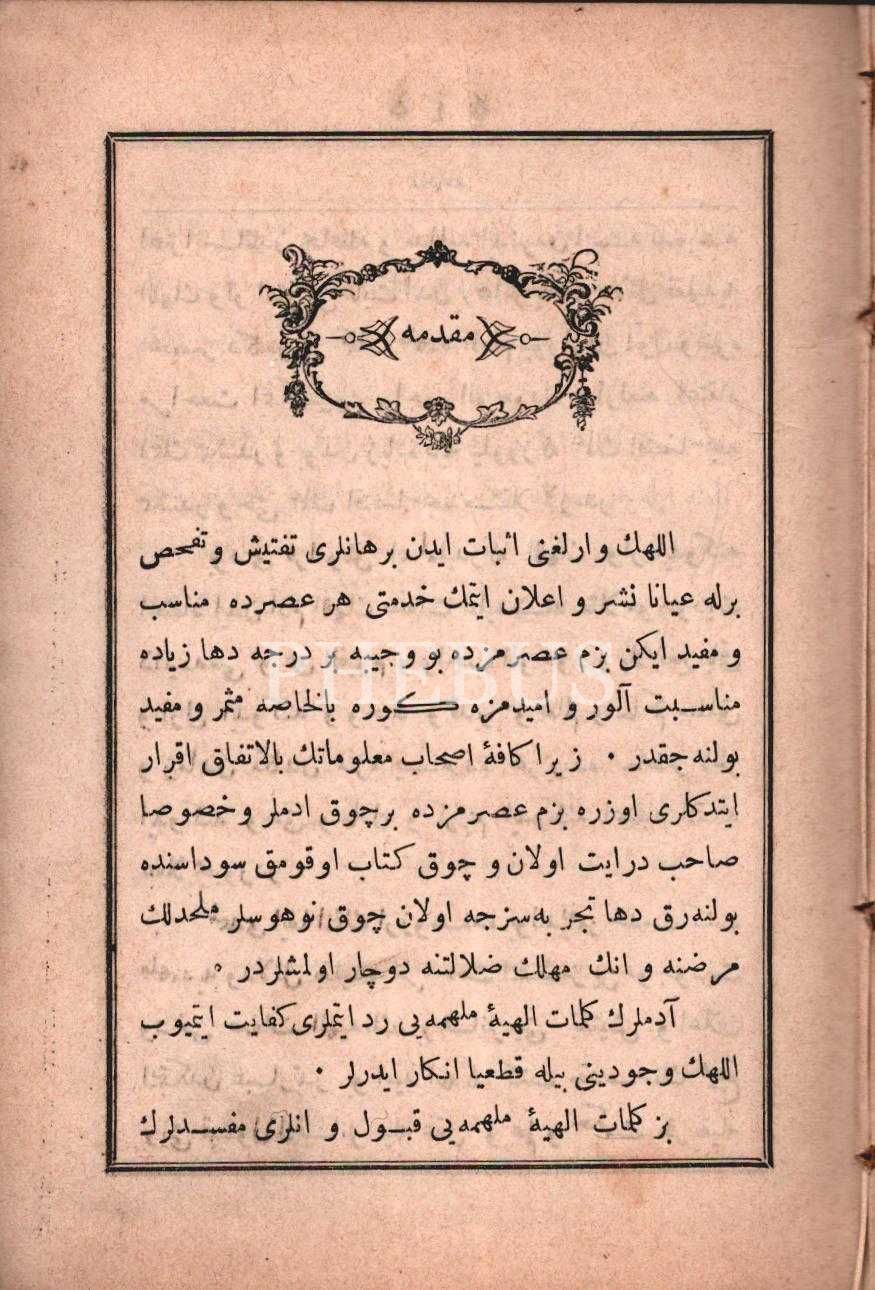 مقدمه
اللهك وارلغنی اثبات ایدن برهانلری تفتیش و تفحص
برله عیانا نشر و اعلان ایتمك خدمتی هر عصرده مناسب
و مفید ایكن بزم عصرمزده بو وجیبه بر درجه دها زیاده
PHEBUS
مناسبت آلور و امیدمزه كوره بالخاصه مثمر و مفید
بولنه جقدر · زیرا كافهٔ اصحاب معلوماتك بالاتفاق اقرار
ایتدكلری اوزره بزم عصرمزده برچوق ادملر وخصوصا
صاحب درایت اولان و چوق كتاب اوقومق سوداسنده
بولنه رق دها تجربه سزجه اولان چوق نوهوسلر ملحدلك
مرضنه و انك مهلك ضلالتنه دوچار اولمشلردر ·
آدملرك كلمات الهیهٔ ملهمه یی رد ایتملری كفایت ایتمیوب
اللهك وجودینی بیله قطعیا انكار ایدرلر ·
بز كلمات الهیهٔ ملهمه یی قبول و انلری مفسدلرك